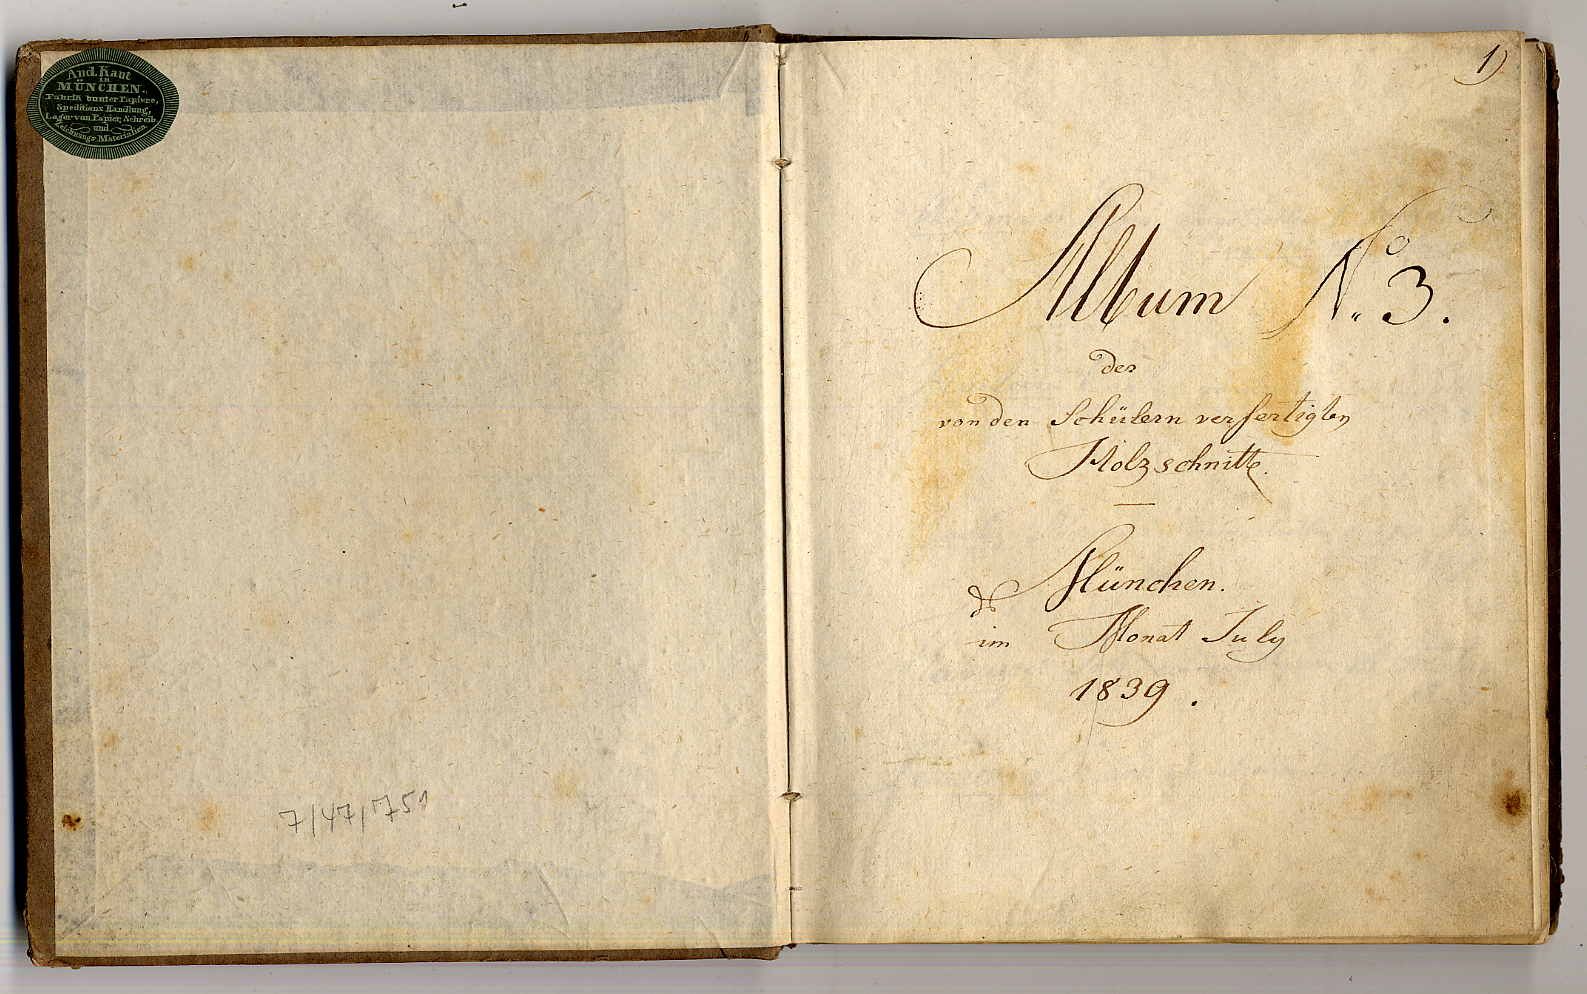 And. Kaut
in
MÜNCHEN.
Fabrik bunter Papiere,
Speditions Handlung,
Lager von Papier, Schreib
und
Zeichnungs-Materialien
7/47/1751
1)
Album No. 3.
der
von den Schülern verfertigten
Holzschnitte.
München.
im Monat July
1839.